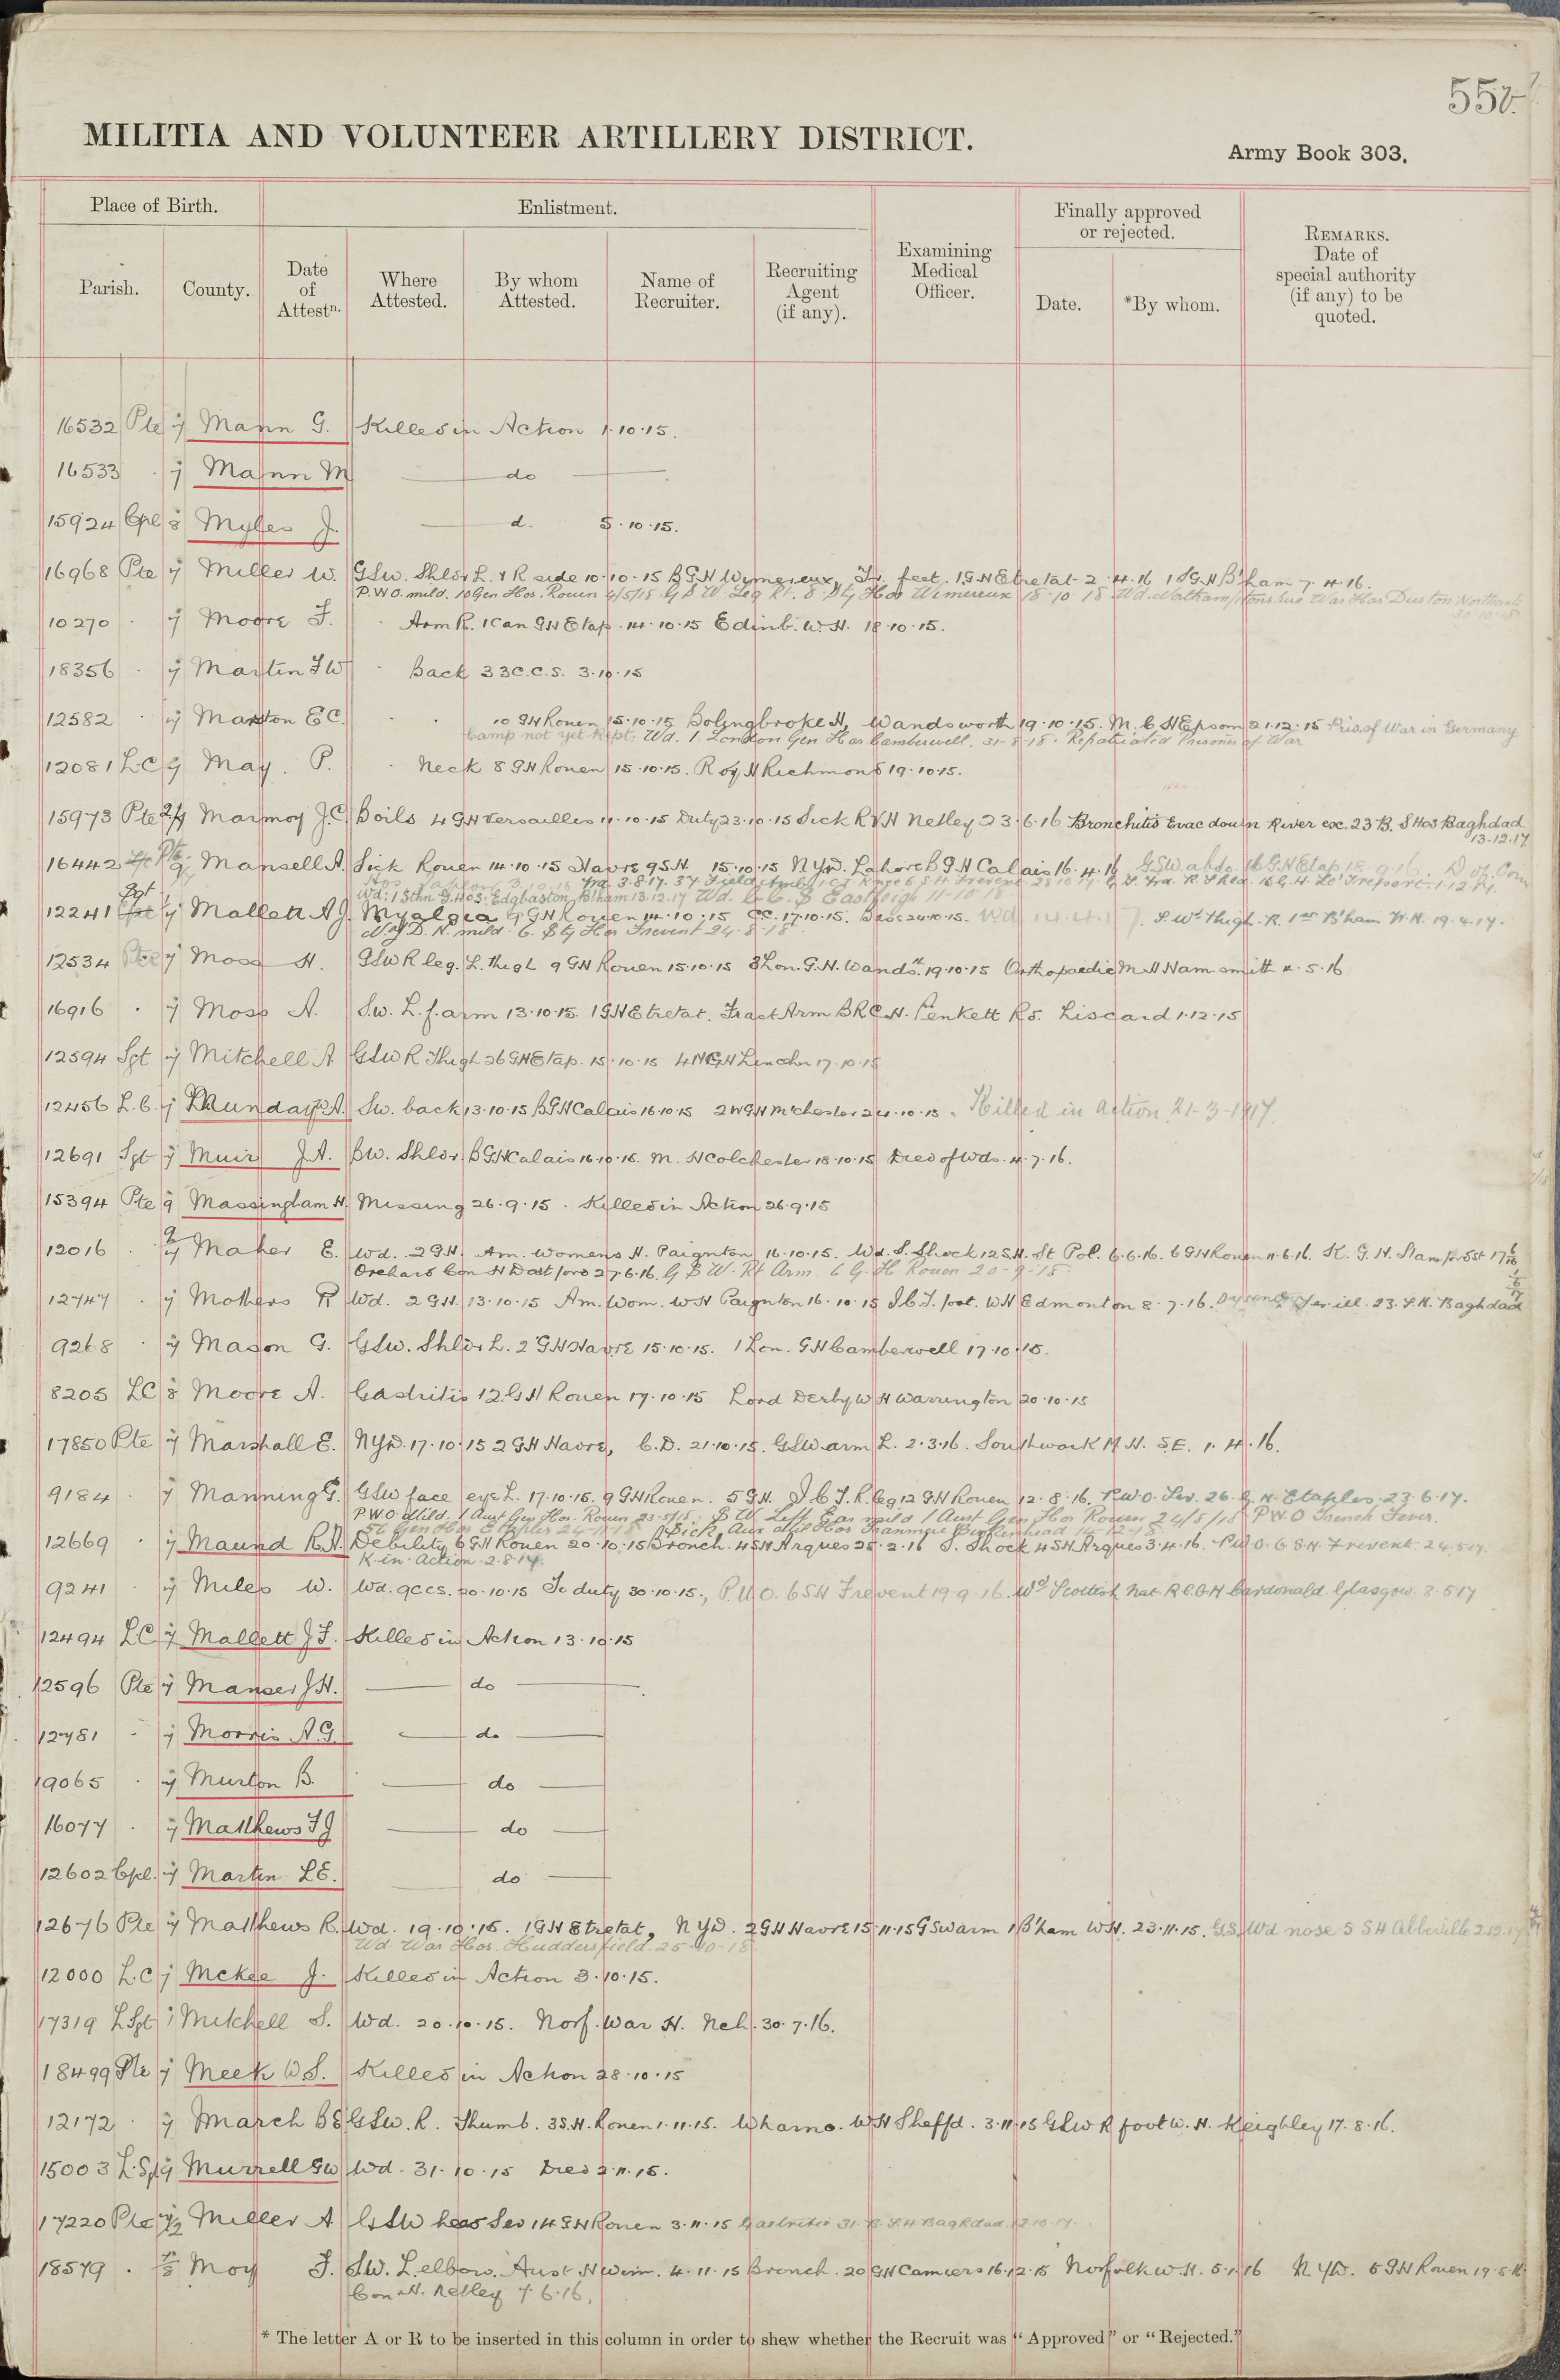 55b
MILITIA AND VOLUNTEER ARTILLERY DISTRICT.
Army Book 303.
Place of Birth.
Enlistment.
Finally approved or rejected.
Parish.
County.
Date of Attestn.
Where Attested.
By whom Attested.
Name of Recruiter.
Recruiting Agent (if any).
Examining Medical Officer.
Date.
*By whom.
REMARKS. Date of special authority (if any) to be quoted.
16532 Pte 7 Mann G. Killed in Action 1.10.15.
16533 . 7 Mann M — do —
15924 Cpl 8 Myles J. — d. 5.10.15.
16968 Pte 7 Miller W. GSW. Shldr L. & R side 10.10.15 BGH Wimereux, Tr. feet. 1GH Etretat 2.4.16 1SGH B'ham 7.4.16.
P.W.O. mild. 10 Gen Hos. Rouen 4/5/18 G S W Leg Rt. 8 Sty Hos Wimereux 15.10.18 War Hos Duston Northants
30.10.18
10270 . 7 Moore F. . Arm R. 1 Can GH Etap. 14.10.15 Edinb. W.H. 18.10.15.
18356 . 7 Martin FW . Back 33 C.C.S. 3.10.15
12582 . 7 Marston EC. . . 10 GH Rouen 15.10.15 Bolingbroke H, Wandsworth 19.10.15. M.C.H Epsom 21.12.15 Pris of War in Germany
Camp not yet Rept. Wd. 1. London Gen Hos Camberwell. 31-8-18. Repatriated Prisoner of War
12081 LC 9 May. P. . Neck 8 GH Rouen 15.10.15. Roy H Richmond 19.10.15.
15973 Pte 2/9 Marmoy J.C. Boils 4 GH Versailles 11.10.15 Duty 23.10.15 Sick RVH Netley 23.6.16 Bronchitis Evac down River exc. 23 B. S Hos Baghdad
13.12.17
16442 Pte 9 Mansell A. Sick Rouen 14.10.15 Havre 9 S.H. 15.10.15 NYD. Lahore BGH Calais 16.4.16 GSW abdo 16 GH Etap 18.9.16. D of Con
Wd. 1 Sthn. G. Hos. Edgbaston B'ham 13.12.17 Wd. Eastleigh 11-10-18
12241 Sgt 7 Mallett AJ. Myalgia 9 GH Rouen 14.10.15. CC. 17.10.15. Disc 24.10.15. Wd. 14.4.17. S. Wd. Thigh. R. 1st B'ham W.H. 19.4.17.
N.Y.D. N. mild. 6. Sty Hos Frevent 24-8-18
12534 Pte 7 Moss H. GSW R leg. L. thigh 9 GH Rouen 15.10.15 3 Lon. G.H. Wands. 19.10.15 Orthopaedic M.H Hamsmith 4.5.16
16916 . 7 Moss A. Sw. L. f. arm 13.10.15. 1 GH Etretat. Fract Arm BRC.H. Penkett Rd. Liscard 1.12.15
12594 Sgt 7 Mitchell A GSW R Thigh 26 GH Etap. 15.10.15 4 NGH Lincoln 17.10.15
12456 L.C. 7 Munday A. Sw. back 13.10.15 BGH Calais 16.10.15 2 WGH M'chester 24.10.15. Killed in action 21-3-1917.
12691 Sgt 7 Muir J.A. BW. Shldr. BGH Calais 16.10.15. M.H Colchester 18.10.15 Died of Wds. 4.7.16.
15394 Pte 9 Massingham H. Missing 26.9.15. Killed in Action 26.9.15
12016 . 9 7 Maher E. Wd. 2 GH. Am. Womens H. Paignton 16.10.15. Wd. S. Shock 12 S.H. St Pol. 6.6.16. 6 GH Rouen 11.6.16. K. G. H. Stamford St 17.6.16
Orchard Con H Dartford 27.6.16. G S W. Rt Arm. 6 G. H Rouen 20-9-18
12747 . 7 Mothers R Wd. 2 GH. 13.10.15 Am. Wom. WH Paignton 16.10.15 I.C.T. foot. WH Edmonton 8.7.16. Dysentery Ser ill. 23. S.H. Baghdad
9268 . 7 Mason G. GSw. Shldr L. 2 GH Havre 15.10.15. 1 Lon. GH Camberwell 17.10.15.
8205 LC 8 Moore A. Gastritis 12 GH Rouen 17.10.15 Lord Derby W H Warrington 20.10.15
17850 Pte 7 Marshall E. NYD. 17.10.15 2 GH Havre, C.D. 21.10.15. GSW arm L. 2.3.16. Southwark M H. S.E. 1.4.16.
9184 . 7 Manning G. GSW face eye L. 17.10.15. 9 GH Rouen. 5 GH. I C T. R. leg 12 GH Rouen 12.8.16. P.W.O. Sev. 26. G. H. Etaples. 23.6.17.
PWO Mild. 1 Aust Gen Hos. Rouen 23/5/18. S W Left Ear mild 1 Aust Gen Hos Rouen 24/8/18 PWO Trench Fever.
56 Gen Hos Etaples 24-11-18 Sick Aux Mil Hos Tranmere Birkenhead 14-12-18
12669 . 7 Maund R.A. Debility 6 GH Rouen 20.10.15 Bronch. 4 SH Arques 25.2.16 S. Shock 4 SH Arques 3.4.16. P.U.O. 6 S.H. Frevent. 24.5.17.
K. in. Action. 2.8.17.
9241 . 7 Miles W. Wd. 9 CCS. 20.10.15 To duty 30.10.15., P.U.O. 6 SH Frevent 19.9.16. Wd Scottish Nat. R.C.G.H Cardonald. Glasgow. 3.5.17
12494 LC 7 Mallett J F. Killed in Action 13.10.15
12596 Pte 7 Manser J H. — do —
12781 . 7 Morris A.G. — do —
19065 . 7 Murton B. — do —
16077 . 7 Matthews F J — do —
12602 Cpl. 7 Martin L.E. — do —
12676 Pte 7 Matthews R. Wd. 19.10.15. 1 GH Etretat, NYD. 2 GH Havre 15.11.15 GSW arm 1 B'ham WH. 23.11.15. G.S. Wd nose 5 SH Abbeville 2.12.17
Wd War Hos. Huddersfield. 25-10-18
12000 L.C 7 McKee J. Killed in Action 3.10.15.
17319 L Sgt 7 Mitchell S. Wd. 20.10.15. Norf. War H. Nch. 30.7.16.
18499 Pte 7 Meek W S. Killed in Action 28.10.15
12172 . 7 March B E GSW. R. Thumb. 3 S.H. Rouen 1.11.15. Wharnc. WH Sheffd. 3.11.15 GSW R foot W.H. Keighley 17.8.16.
15003 L. Sgt 9 Murrell GW Wd. 31.10.15 Died 2.11.15.
17220 Pte 7/2 Miller A GSW head Sev 14 GH Rouen 3.11.15 Gastritis 31. B. S. H Baghdad. 12.10.17.
18579 . 7/8 Moy F. S.W. L. elbow. Aust H Wim. 4.11.15 Bronch. 20 GH Camiers 16.12.15 Norfolk W.H. 5.1.16 N Y D. 5 GH Rouen 19.5.16
Con H. Netley 7.6.16.
* The letter A or R to be inserted in this column in order to shew whether the Recruit was "Approved" or "Rejected."